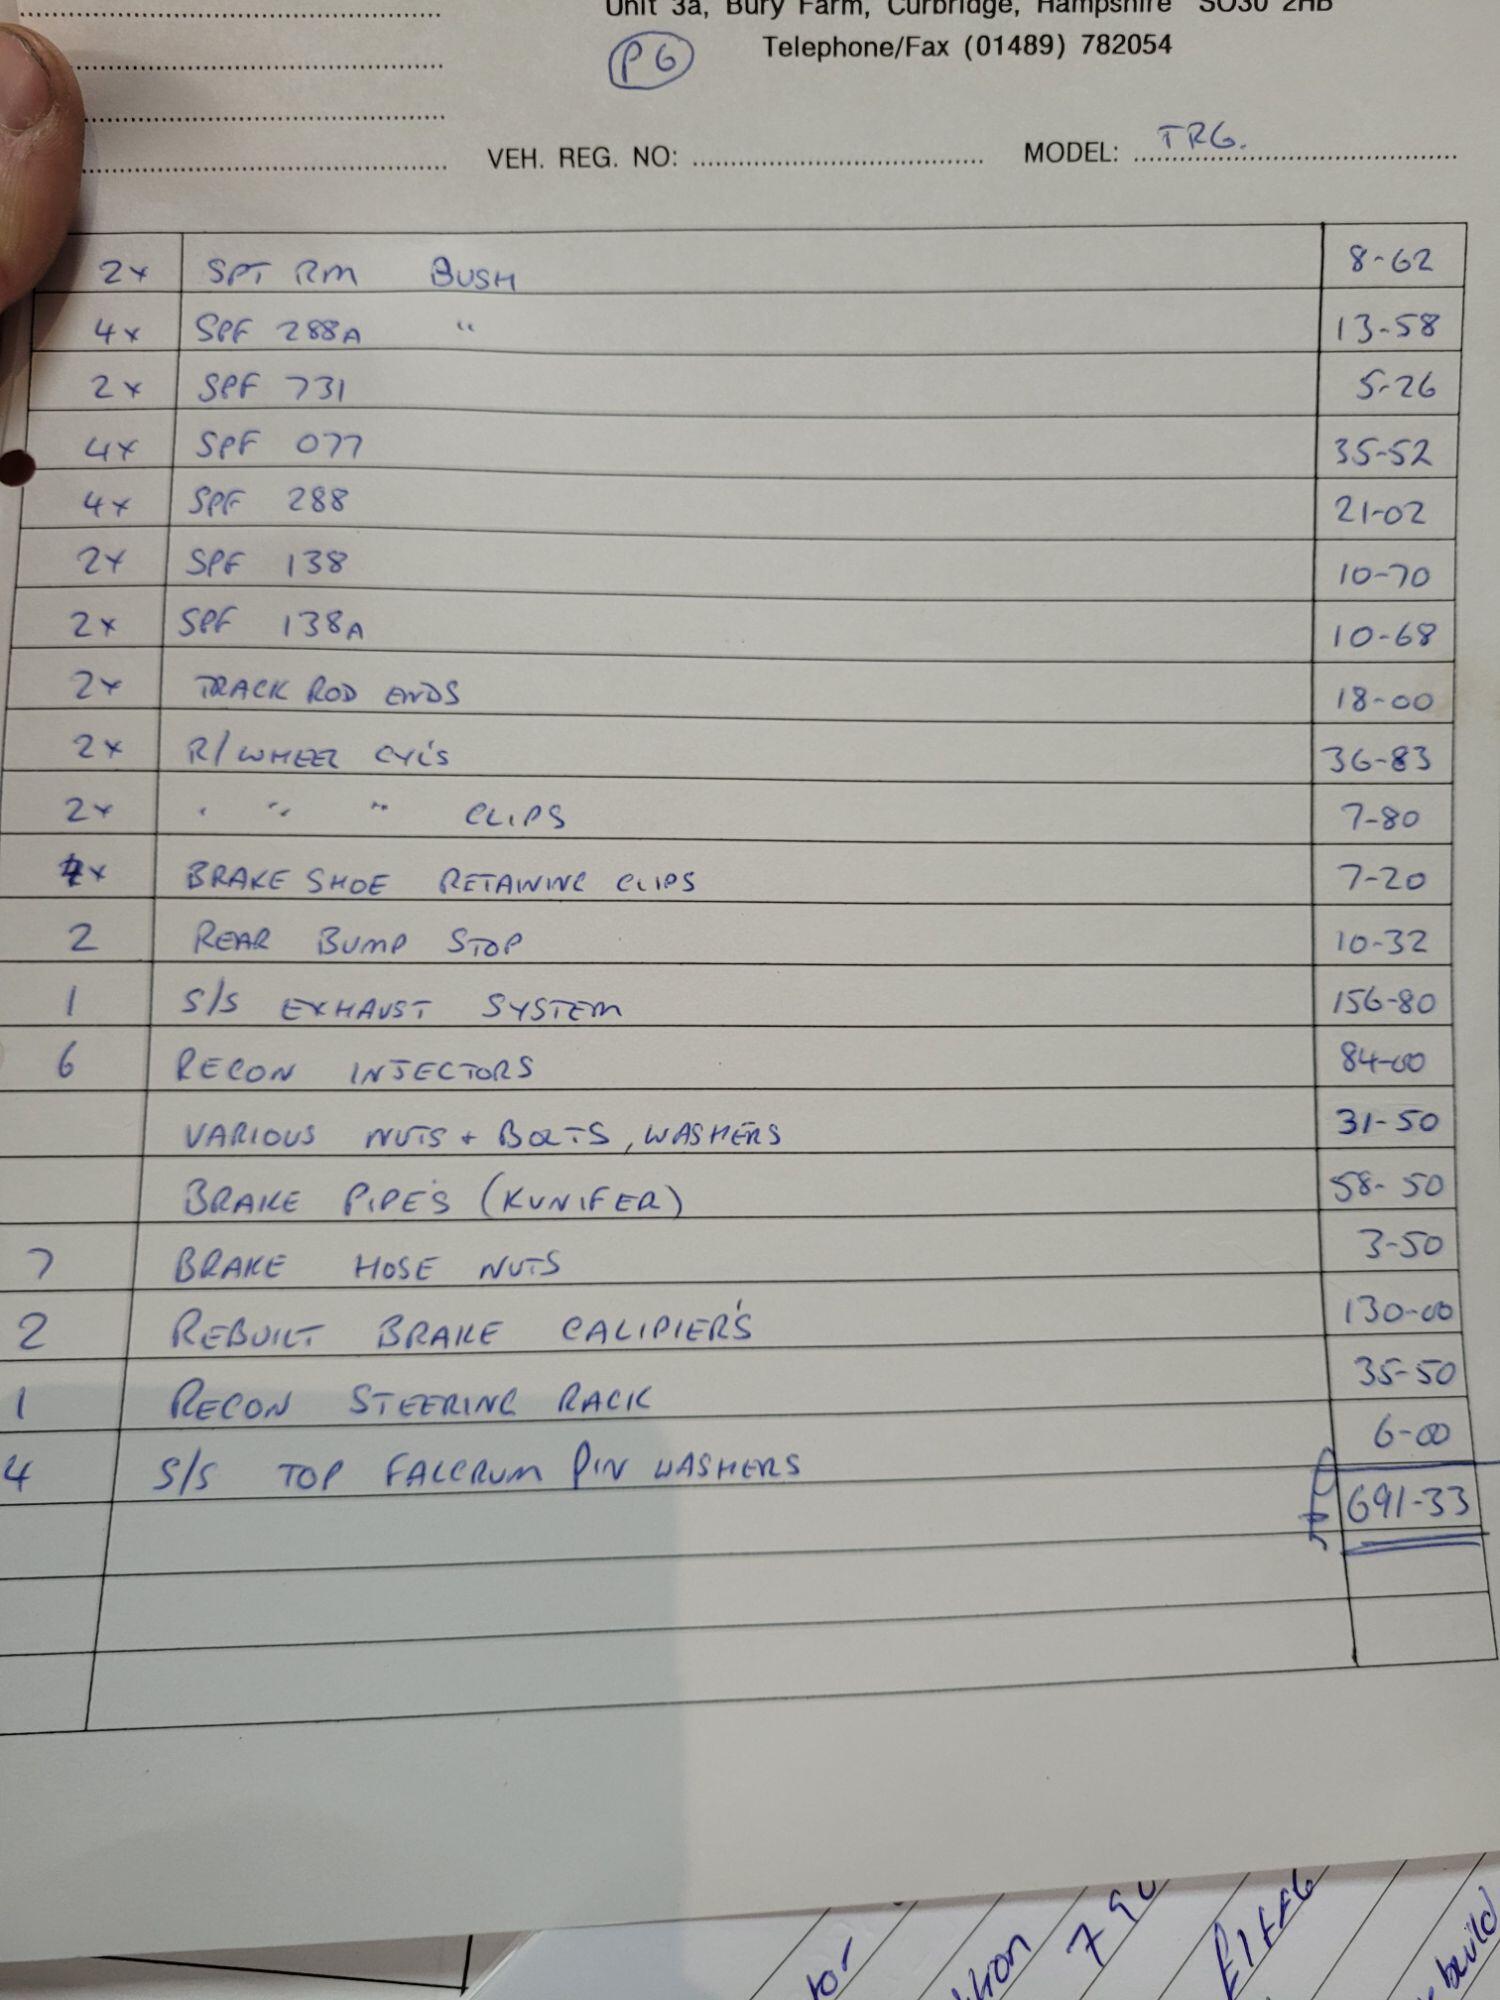 Unit 3a, Bury Farm, Curbridge, Hampshire SO30 2HB
P6 Telephone/Fax (01489) 782054
VEH. REG. NO: MODEL: TR6.
2x SPT RM BUSH 8-62
4x SPF 288A " 13-58
2x SPF 731 5-26
4x SPF 077 35-52
4x SPF 288 21-02
2x SPF 138 10-70
2x SPF 138A 10-68
2x TRACK ROD ENDS 18-00
2x R/WHEEL CYL'S 36-83
2x " " " CLIPS 7-80
4x BRAKE SHOE RETAINING CLIPS 7-20
2 REAR BUMP STOP 10-32
1 S/S EXHAUST SYSTEM 156-80
6 RECON INJECTORS 84-00
VARIOUS NUTS + BOLTS, WASHERS 31-50
BRAKE PIPE'S (KUNIFER) 58-50
7 BRAKE HOSE NUTS 3-50
2 REBUILT BRAKE CALIPIER'S 130-00
1 RECON STEERING RACK 35-50
4 S/S TOP FALCRUM PIN WASHERS 6-00
691-33
build